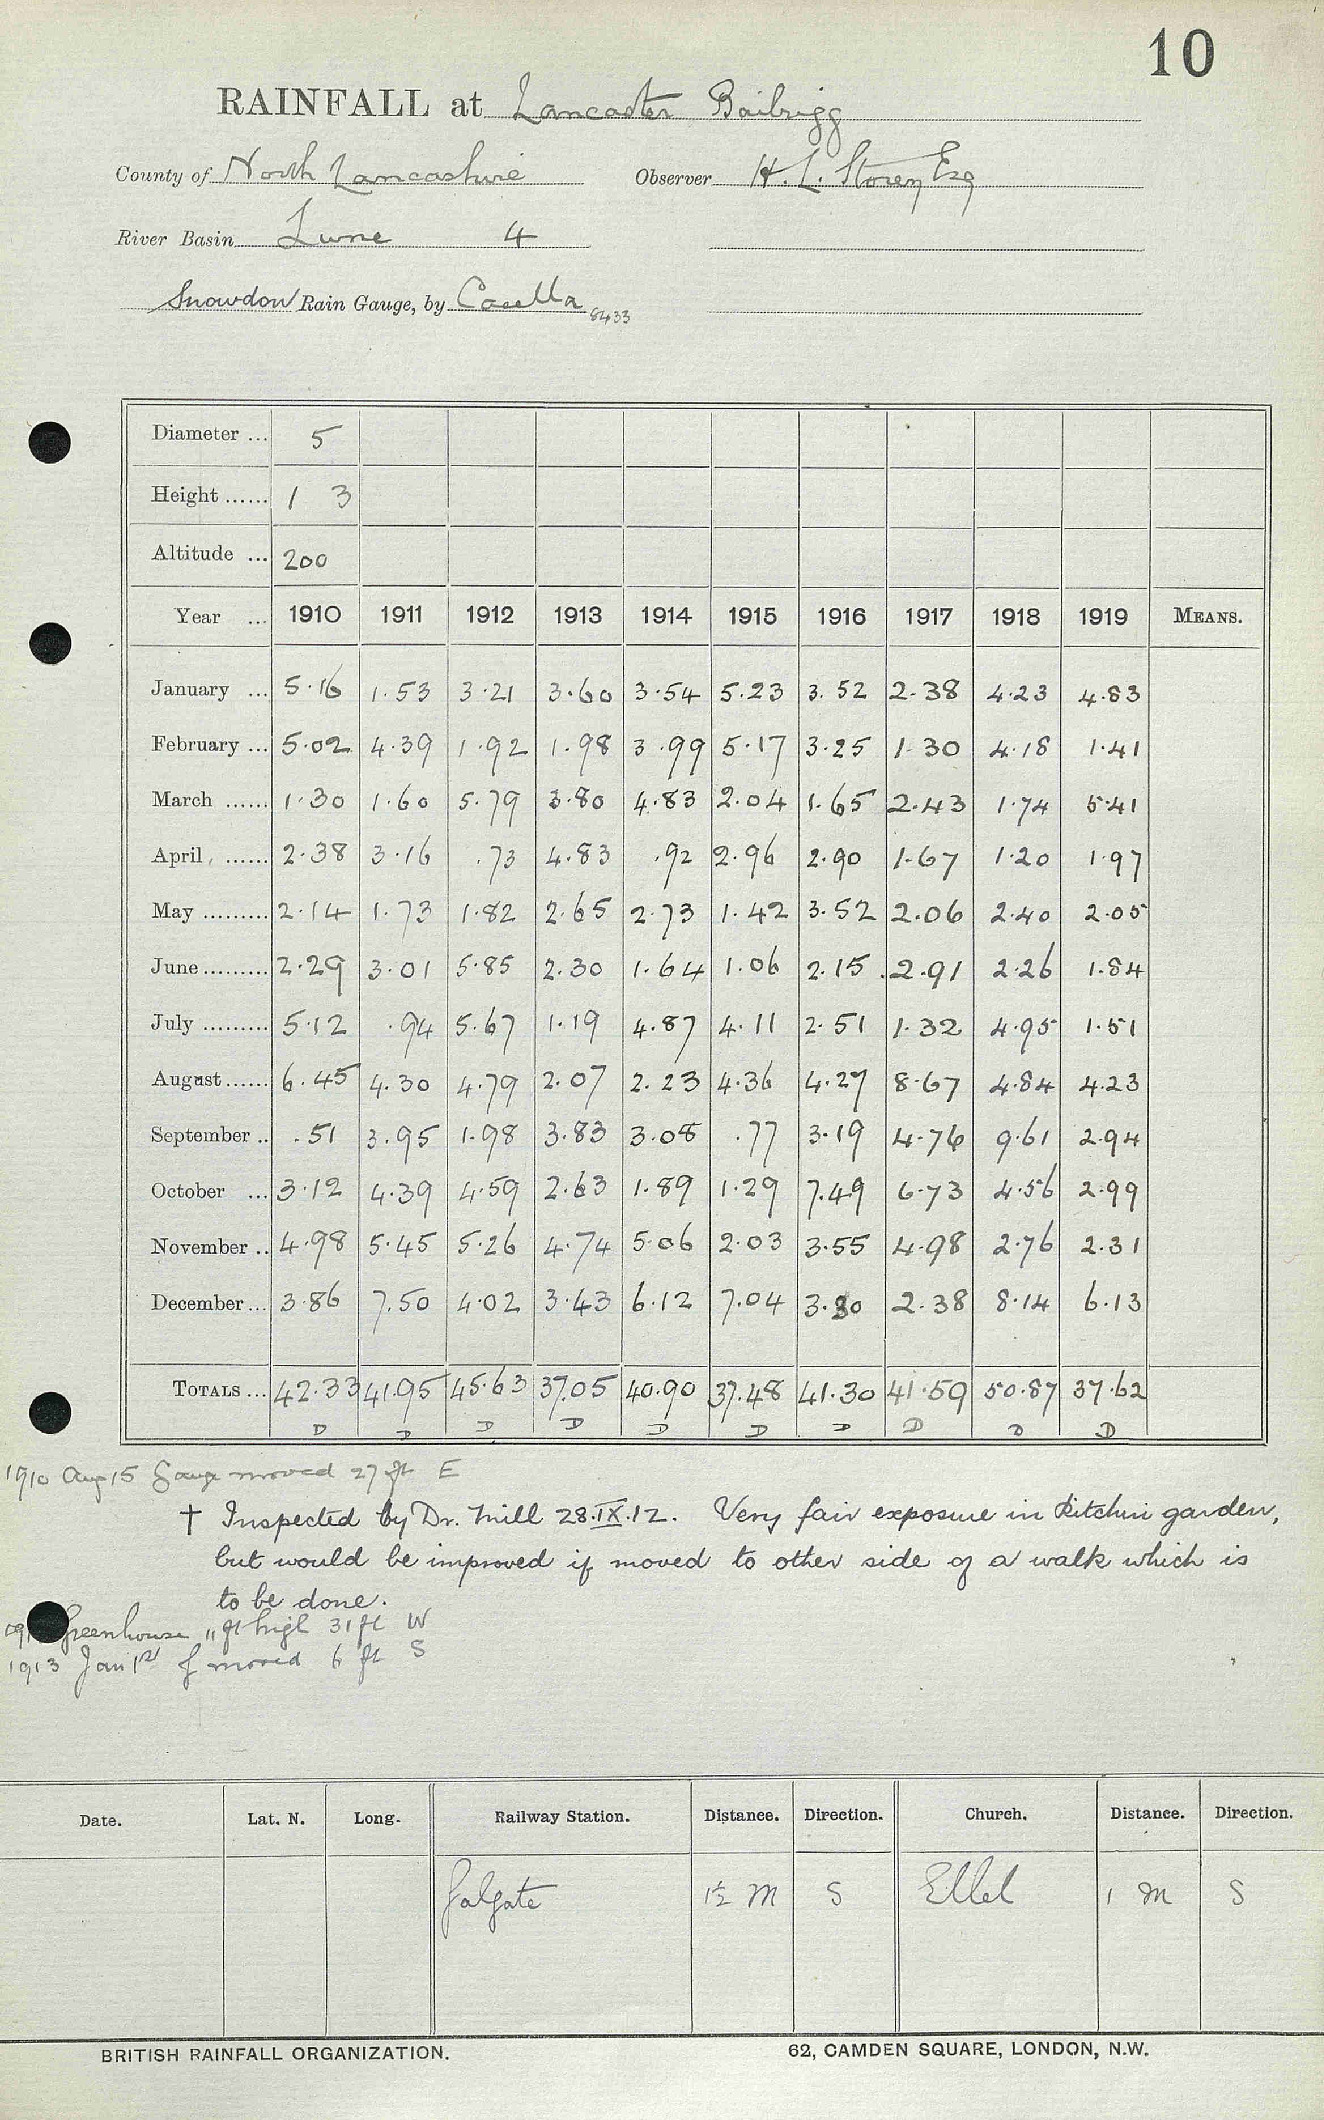 10
RAINFALL at Lancaster Bailrigg
County of North Lancashire Observer H. L. Storey Esq
River Basin Lune 4
Snowdon Rain Gauge, by Casella 8433
Diameter ... 5
Height ...... 1 3
Altitude ... 200
Year ... 1910 1911 1912 1913 1914 1915 1916 1917 1918 1919 MEANS.
January ... 5.16 1.53 3.21 3.60 3.54 5.23 3.52 2.38 4.23 4.83
February ... 5.02 4.39 1.92 1.98 3.99 5.17 3.25 1.30 4.18 1.41
March ...... 1.30 1.60 5.79 3.80 4.83 2.04 1.65 2.43 1.74 5.41
April ...... 2.38 3.16 .73 4.83 .92 2.96 2.90 1.67 1.20 1.97
May ......... 2.14 1.73 1.82 2.65 2.73 1.42 3.52 2.06 2.40 2.05
June ......... 2.29 3.01 5.85 2.30 1.64 1.06 2.15 2.91 2.26 1.84
July ......... 5.12 .94 5.67 1.19 4.87 4.11 2.51 1.32 4.95 1.51
August ...... 6.45 4.30 4.79 2.07 2.23 4.36 4.27 8.67 4.84 4.23
September .. .51 3.95 1.98 3.83 3.08 .77 3.19 4.76 9.61 2.94
October ... 3.12 4.39 4.59 2.63 1.89 1.29 7.49 6.73 4.56 2.99
November .. 4.98 5.45 5.26 4.74 5.06 2.03 3.55 4.98 2.76 2.31
December ... 3.86 7.50 4.02 3.43 6.12 7.04 3.30 2.38 8.14 6.13
TOTALS ... 42.33 41.95 45.63 37.05 40.90 37.48 41.30 41.59 50.87 37.62
D D D D D D D D D D
1910 Aug 15 Gauge moved 27 ft E
† Inspected by Dr. Mill 28.IX.12. Very fair exposure in Kitchin garden,
but would be improved if moved to other side of a walk which is
to be done.
Greenhouse 11 ft high 31 ft W
1913 Jan 1st moved 6 ft S
Date. Lat. N. Long. Railway Station. Distance. Direction. Church. Distance. Direction.
Galgate 1½ M S Ellel 1 M S
BRITISH RAINFALL ORGANIZATION. 62, CAMDEN SQUARE, LONDON, N.W.